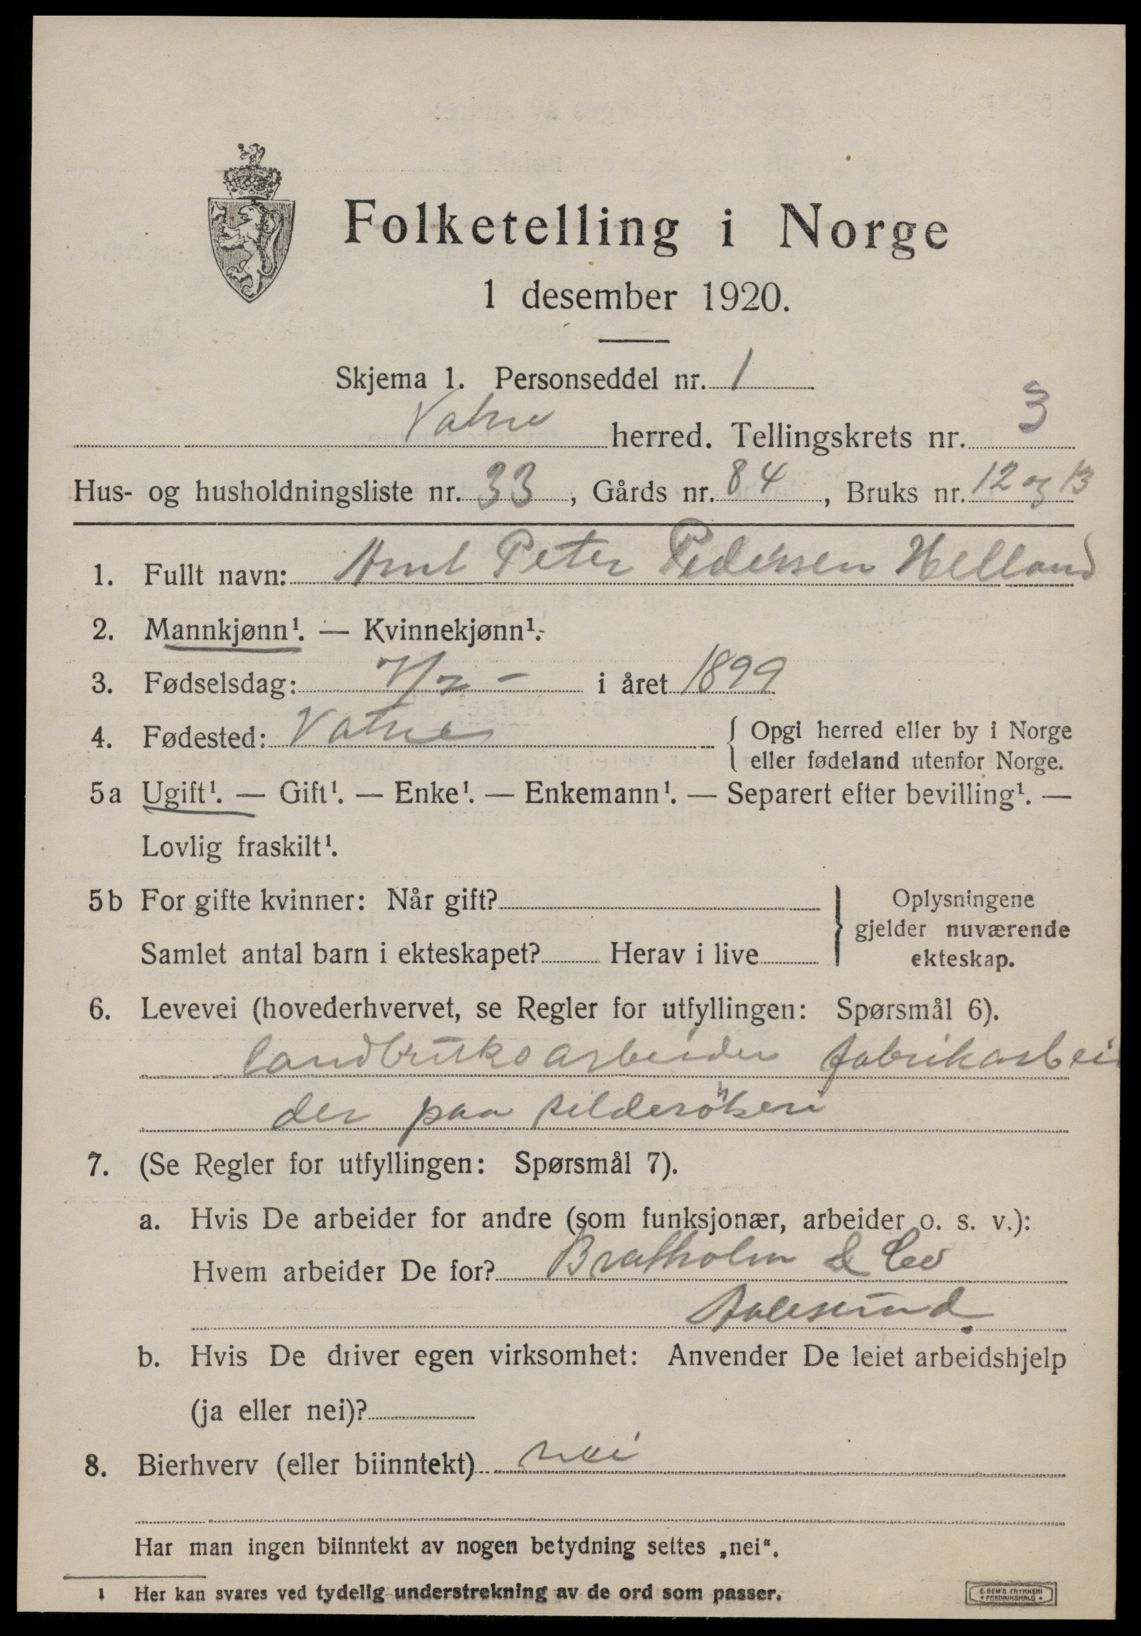 Folketelling i Norge
1 desember 1920.
Skjema 1. Personseddel nr. 1
Vatne herred. Tellingskrets nr. 3
Hus- og husholdningsliste nr. 33, Gårds nr. 84, Bruks nr. 12 og 13
1. Fullt navn: Arnt Peter Pedersen Helland
2. Mannkjønn¹. — Kvinnekjønn¹.
3. Fødselsdag: 7/2 - i året 1899
4. Fødested: Vatne { Opgi herred eller by i Norge
eller fødeland utenfor Norge.
5a Ugift¹. — Gift¹. — Enke¹. — Enkemann¹. — Separert efter bevilling¹. —
Lovlig fraskilt¹.
5b For gifte kvinner: Når gift? } Oplysningene
gjelder nuværende
Samlet antal barn i ekteskapet? Herav i live ekteskap.
6. Levevei (hovederhvervet, se Regler for utfyllingen: Spørsmål 6).
landbruksarbeider fabrikarbei
der paa
7. (Se Regler for utfyllingen: Spørsmål 7).
a. Hvis De arbeider for andre (som funksjonær, arbeider o. s. v.):
Hvem arbeider De for? Bratholm & Co
Aalesund.
b. Hvis De driver egen virksomhet: Anvender De leiet arbeidshjelp
(ja eller nei)?
8. Bierhverv (eller biinntekt) nei
Har man ingen biinntekt av nogen betydning settes „nei“.
1 Her kan svares ved tydelig understrekning av de ord som passer.